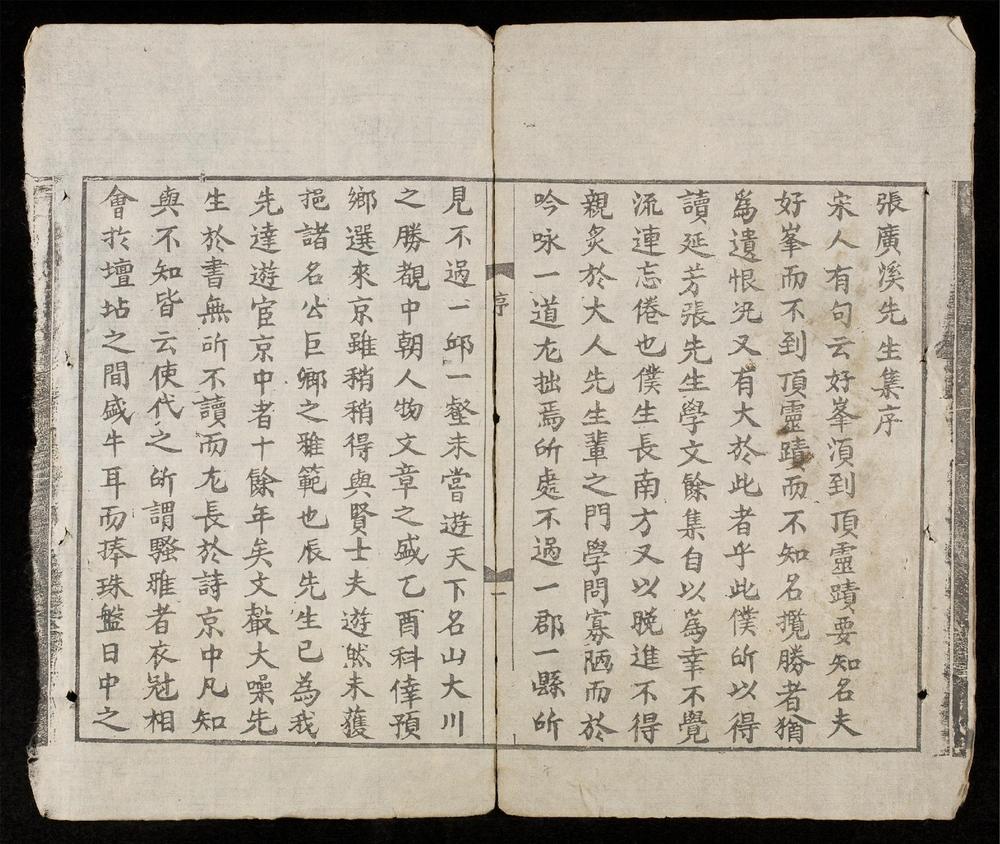 張廣溪先生集序
宋人有句云好峯須到頂靈蹟要知名夫
好峯而不到頂靈蹟而不知名攬勝者猶
爲遺恨況又有大於此者乎此僕所以得
讀延芳張先生學文餘集自以爲幸不覺
流連忘倦也僕生長南方又以晚進不得
親炙於大人先生輩之門學問寡陋而於
吟咏一道尤拙焉所處不過一郡一縣所
序
一
見不過一邱一壑未嘗遊天下名山大川
之勝覩中朝人物文章之盛乙酉科倖預
鄉選來京雖稍稍得與賢士夫遊然未獲
挹諸名公巨卿之雅範也辰先生已為我
先達遊宦京中者十餘年矣文聲大噪先
生於書無所不讀而尤長於詩京中凡知
與不知皆云使代之所謂騷雅者衣冠相
會於壇坫之間盛牛耳而捧珠盤日中之